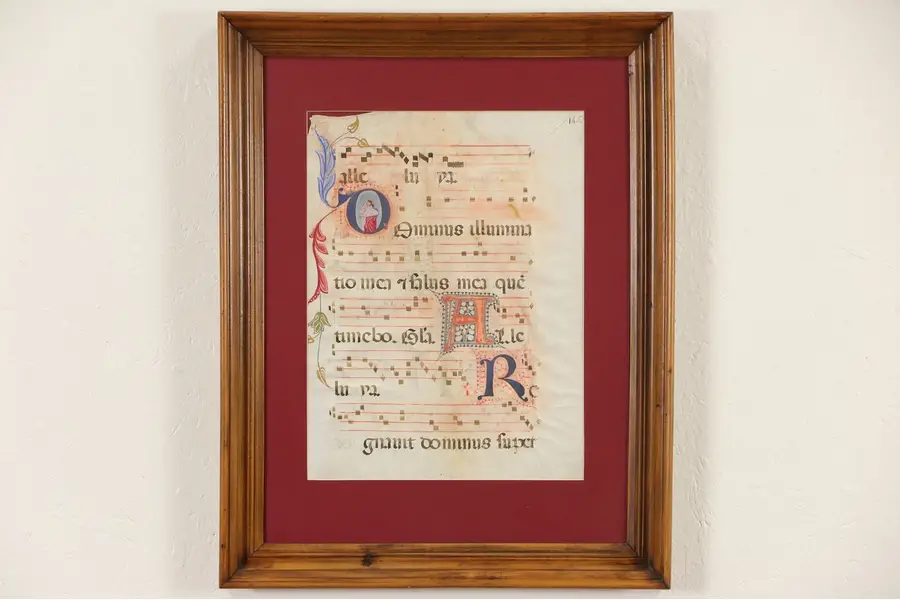 alle lu ya.
Dominus illumina
tio mea ⁊ salus mea quē
timebo. Gl'a. Alle
lu ya. Re
gnauit dominus super